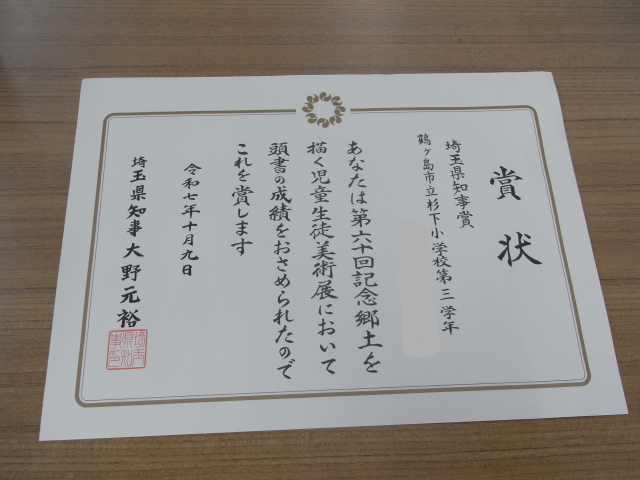 賞状
埼玉県知事賞
鶴ヶ島市立杉下小学校第三学年
あなたは第六十回記念郷土を
描く児童生徒美術展において
頭書の成績をおさめられたので
これを賞します
令和七年十月九日
埼玉県知事 大野元裕
埼玉県知事之印